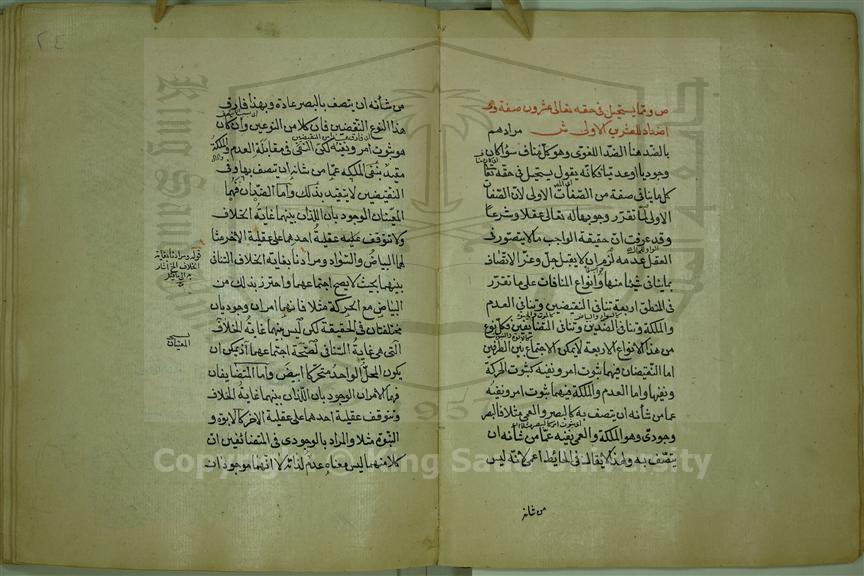 ص ومما يستحيل في حقه تعالى عشرون صفة وهي
اضداد العشرين الاولى ش مرادهم
بالضد هنا الضد اللغوى وهو كل مناف سواء كان
وجوديا او عدميا فكانه يقول يستحيل في حقه تعا
كل ما ينافي صفة من الصفات الاولى لان الصفات
الاولى لما تقرر وجوبها له تعالى عقلا وشرعا
وقد عرفت ان حقيقة الواجب ما لا يتصور في
العقل عدمه لزم ان لا يقبل جل وعز الاتصاف
بما ينافي شيئا منها وانواع المنافات على ما تقرر
في المنطق اربعة تنافي النقيضين وتنافي العدم
والملكة وتنافي الضدين وتنافي المتضايفين فكل نوع
من هذا الانواع الاربعة لا يمكن الاجتماع بين الطرفين
اما النقيضان فهما ثبوت امر ونفيه كثبوت الحركة
ونفيها واما العدم والملكة فهما ثبوت امر ونفيه
عما من شانه ان يتصف به كالبصر والعمى مثلا فالبصر
وجودى وهو الملكة والعمى نفيه عما من شانه ان
يتصف به ولهذا لا يقال في الحائط اعمى لانه ليس
من شانه
من شانه ان يتصف بالبصر عادة وبهذا فارق
هذا النوع النقيضين فان كلا من النوعين وان كان
هو ثبوت امر ونفيه لكن النفي في مقابلة العدم والملكة
مقيد بنفي الملكة عما من شانه ان يتصف بها وفي
النقيضين لا يتقيد بذلك واما الضدان فهما
المعنيان الوجوديان اللذان بينهما غاية الخلاف
ولا تتوقف عليه عقلية احدهما على عقلية الاخر مثا
لهما البياض والسواد ومرادنا بغاية الخلاف التنافي
بينهما بحيث لا يصح اجتماعهما واحترز بذلك من
البياض مع الحركة مثلا فانهما امران وجوديان
مختلفان في الحقيقة لكن ليس بينهما غاية الخلاف
التي هي غاية التنافي لصحة اجتماعهما اذ يمكن ان
يكون المحل الواحد متحركا ابيض واما المتضايفان
فهما الامران الوجوديان اللذان بينهما غاية الخلاف
وتتوقف عقلية احدهما على عقلية الاخر كالابوة و
البنوة مثلا والمراد بالوجودى في المتضائفين ان
كلا منهما ليس معناه عدم كذا لا انهما موجودان
قوله ومرادنا بغاية
الخلاف الخ
Copyright © King Saud University